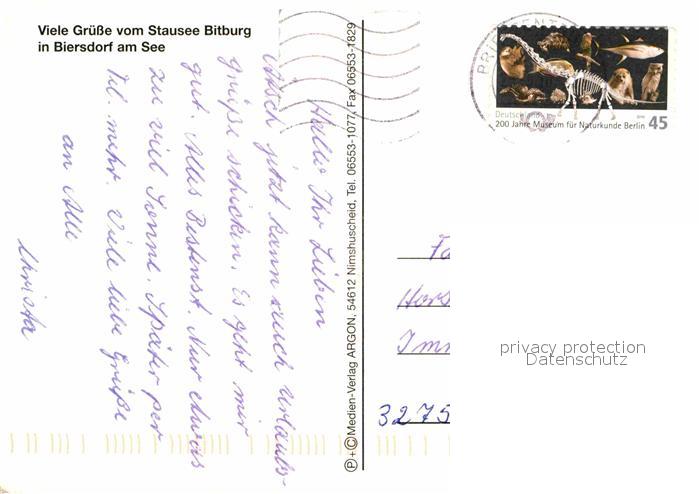 Viele Grüße vom Stausee Bitburg
in Biersdorf am See
Hallo Ihr Lieben
Ätsch jetzt kann auch Urlaubs-
grüße schicken. Es geht mir
gut. Alles Bestenst. Nur etwas
zu viel Sonne. Später per
Tel. mehr. Viele liebe Grüße
an Alle
Christa
Ⓟ+Ⓒ Medien-Verlag ARGON, 54612 Nimshuscheid, Tel. 06553-1077, Fax 06553-1829
Deutschland
200 Jahre Museum für Naturkunde Berlin 45
Fa
Hors
Imm
3275
privacy protection
Datenschutz